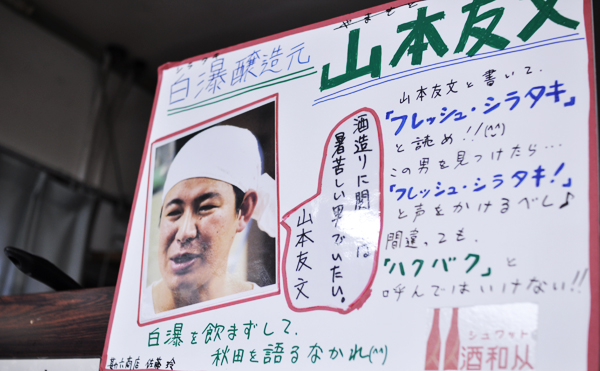 白瀑醸造元
やまもと
山本友文
酒造りに関しては
暑苦しい男でいたい。
山本友文
山本友文と書いて、
「フレッシュ・シラタキ」
と読め!!(^^)
この男を見つけたら…
「フレッシュ・シラタキ!」
と声をかけるべし♪
間違っても、
「ハクバク」と
呼んではいけない!!
白瀑を飲まずして、
秋田を語るなかれ(^^)
シュワット
酒和从